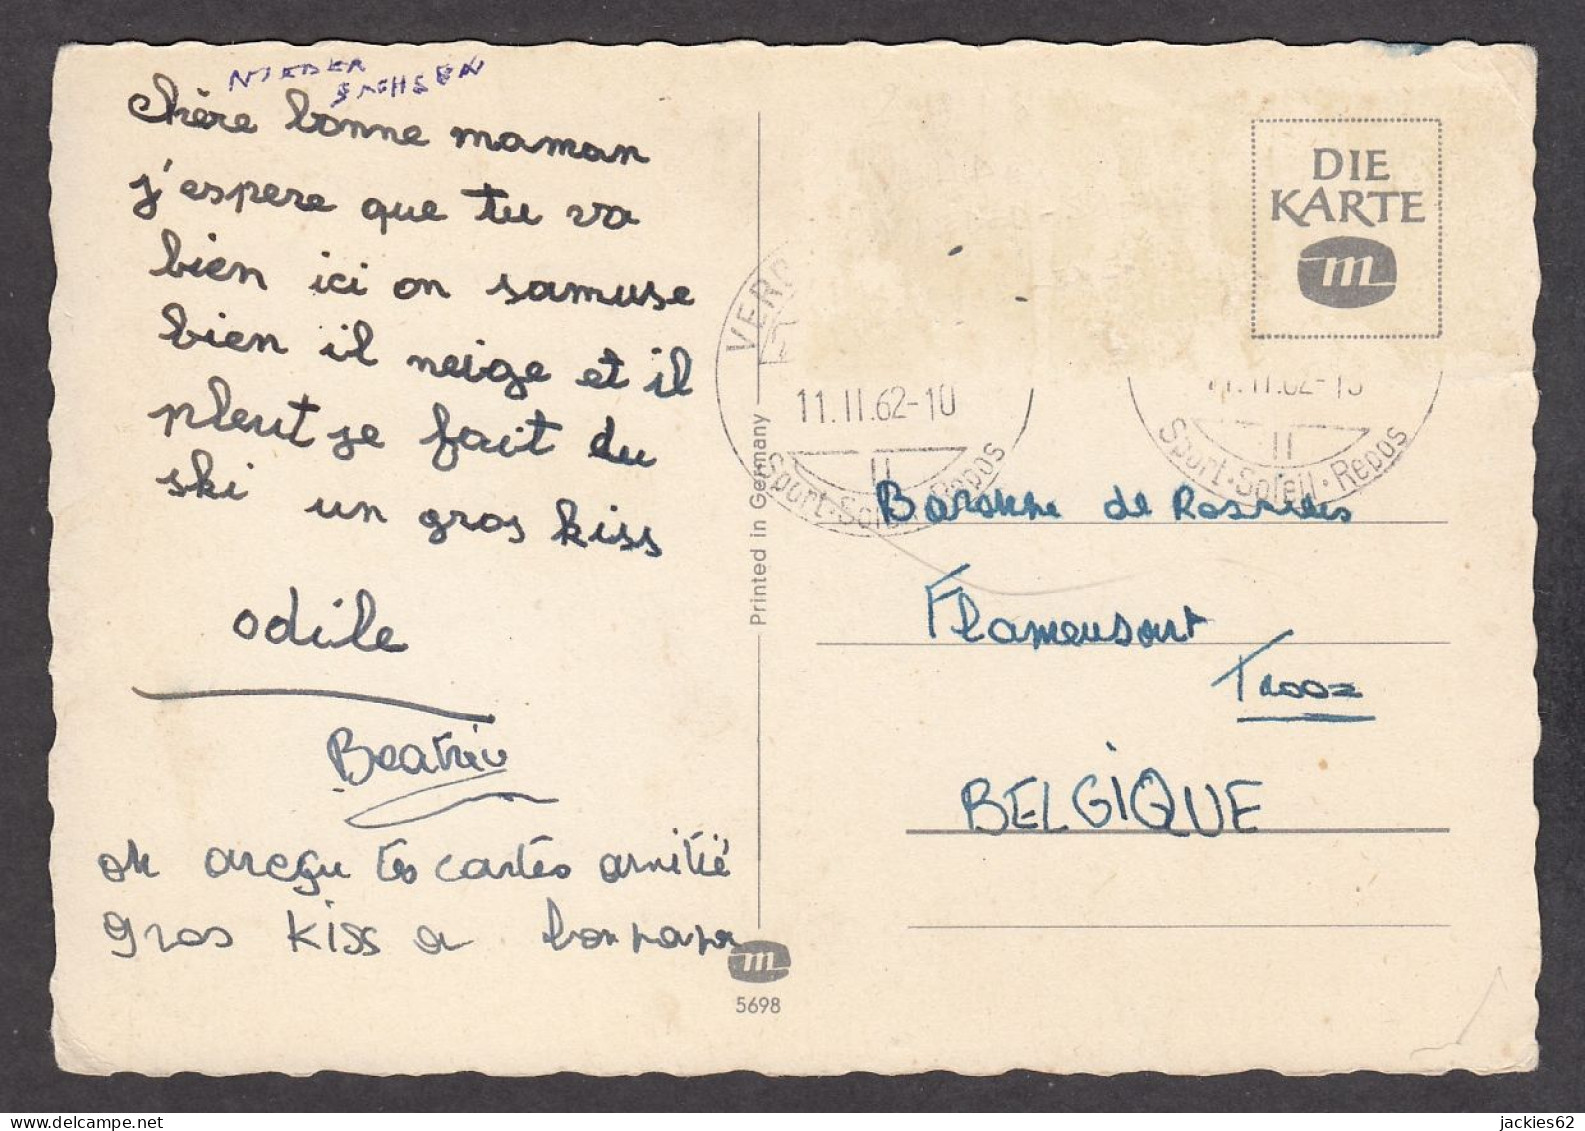 NIEDER
SACHSEN
chère bonne maman
j'espere que tu va
bien ici on samuse
bien il neige et il
pleut je fait du
ski un gros kiss
odile
Beatrix
on areçu tes cartes amitié
gros kiss a bon papa
Printed in Germany
5698
VER
11.II.62-10
II
Sport·Soleil·Repos
DIE
KARTE
m
11.II.62-10
II
Sport·Soleil·Repos
Baronne de
Trooz
BELGIQUE
m
www.delcampe.net
jackies62